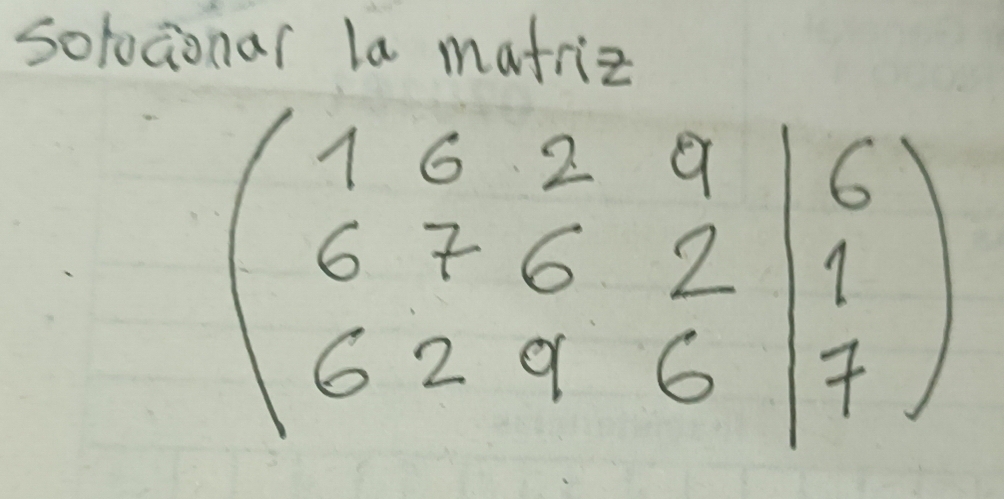 Solocionar la matriz
1 6 2 9 | 6
6 7 6 2 | 1
6 2 9 6 | 7